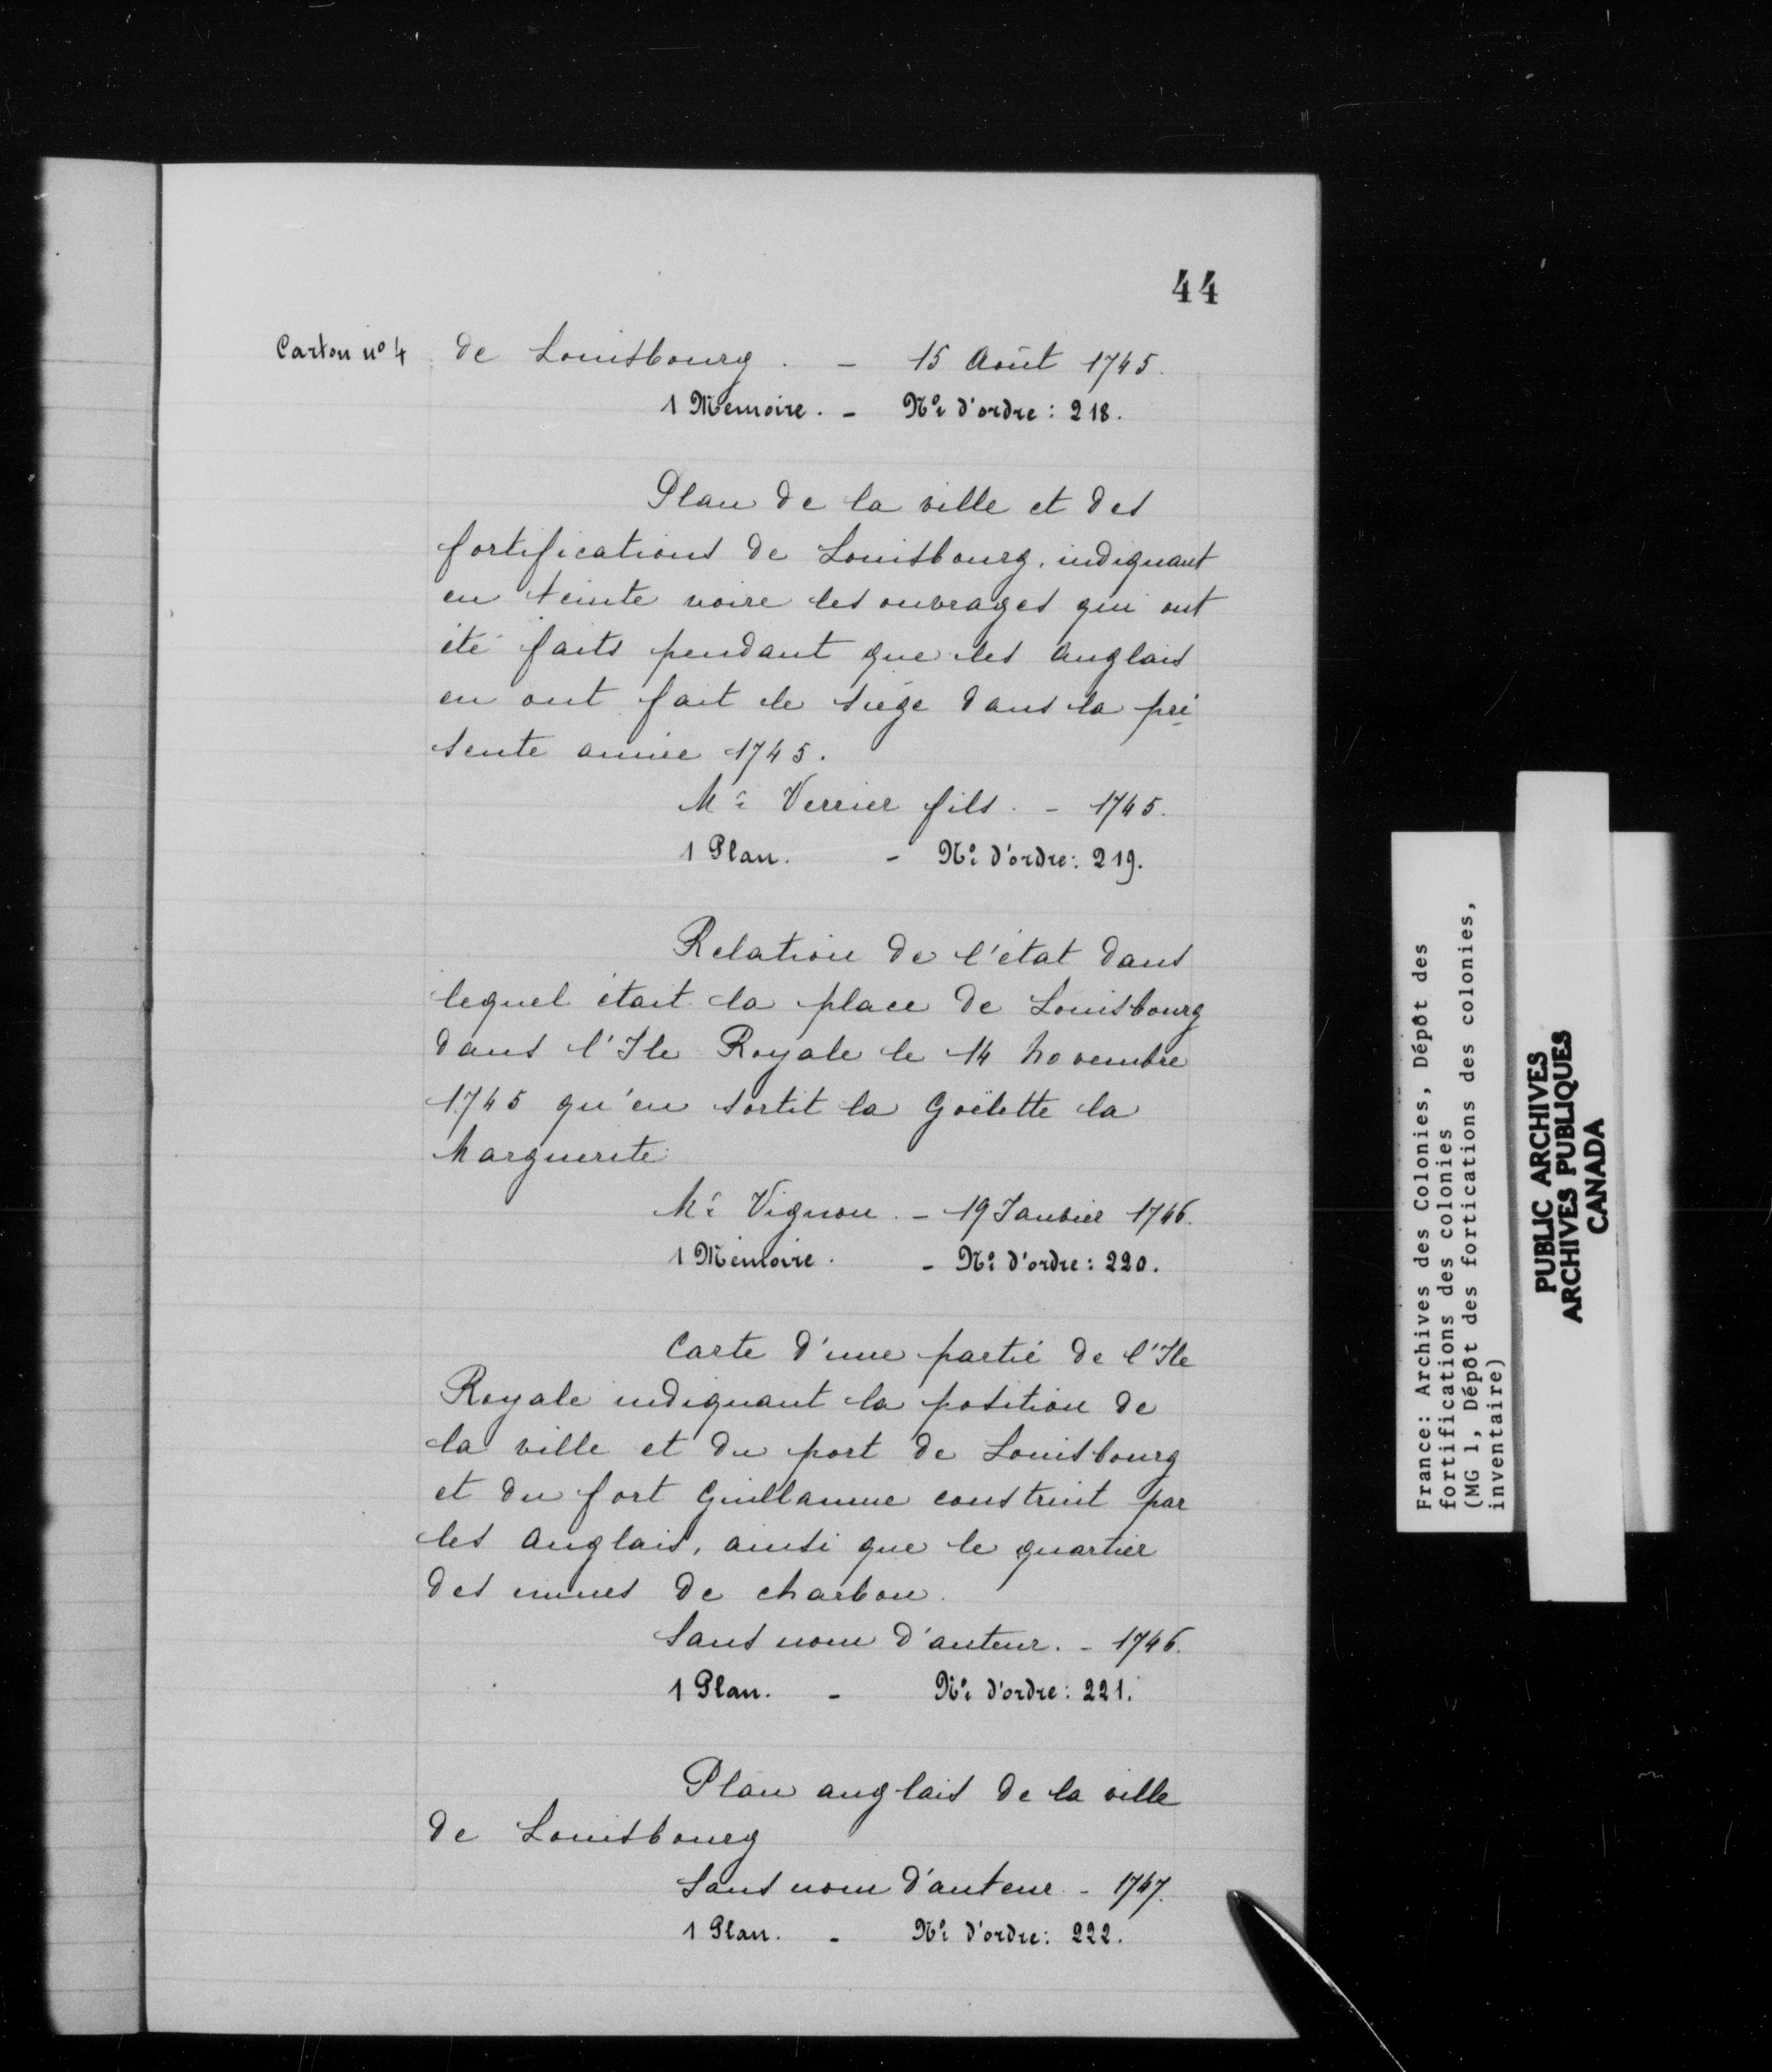 44
Carton nº 4 de Louisbourg. - 15 Août 1745.
1 Mémoire. - Nº d'ordre : 218.
Plan de la ville et des
fortifications de Louisbourg, indiquant
en teinte noire les ouvrages qui ont
été faits pendant que les Anglais
en ont fait le siège dans la pré
sente année 1745.
Mr Verrier fils. - 1745.
1 Plan. - Nº d'ordre : 219.
Relation de l'état dans
lequel était la place de Louisbourg
dans l'Ile Royale le 14 Novembre
1745 qu'en sortit la Goëlette la
Marguerite
Mr Vignon. - 19 Janvier 1746.
1 Mémoire. - Nº d'ordre : 220.
Carte d'une partie de l'Ile
Royale indiquant la position de
la ville et du port de Louisbourg
et du fort Guillaume construit par
les Anglais, ainsi que le quartier
des mines de charbon.
Sans nom d'auteur. - 1746.
1 Plan. - Nº d'ordre : 221.
Plan anglais de la ville
de Louisbourg
Sans nom d'auteur - 1747.
1 Plan. - Nº d'ordre : 222.
France: Archives des Colonies, Dépôt des
fortifications des colonies
(MG 1, Dépôt des fortications des colonies,
inventaire)
PUBLIC ARCHIVES
ARCHIVES PUBLIQUES
CANADA